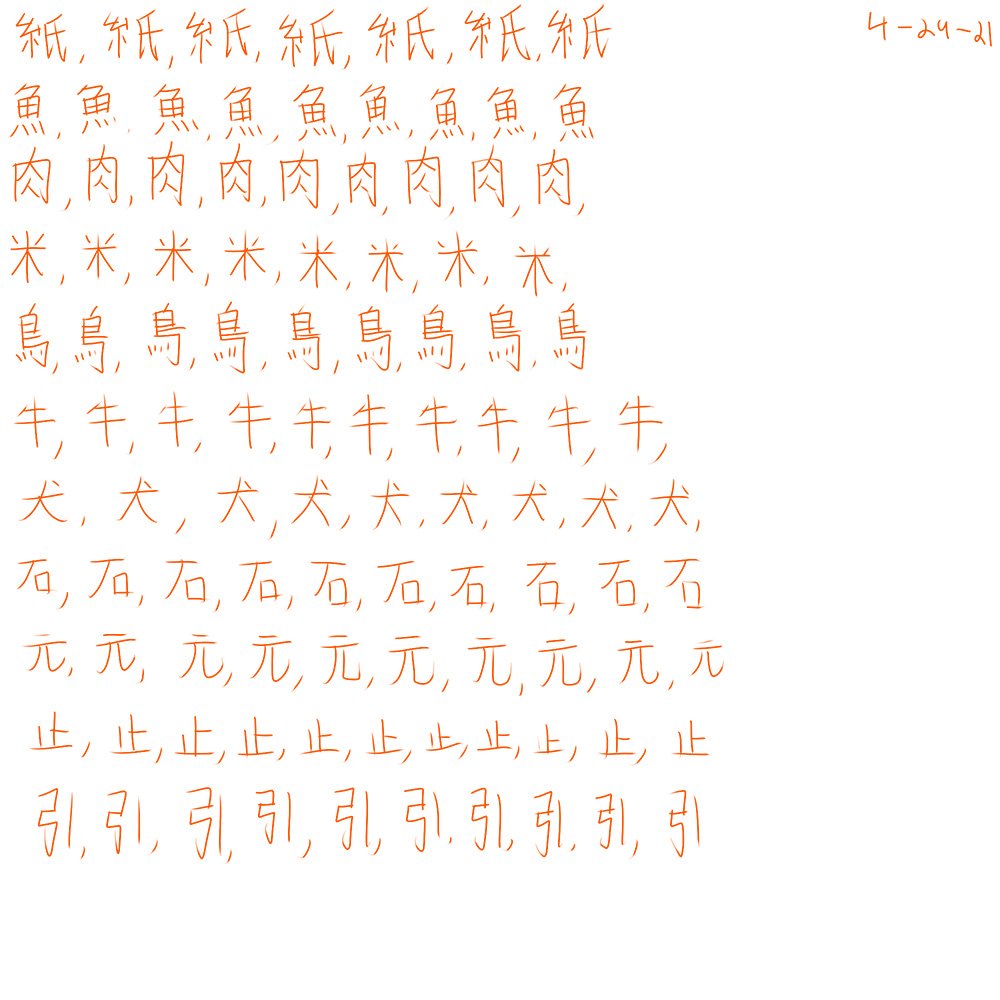 紙, 紙, 紙, 紙, 紙, 紙, 紙 4-24-21
魚, 魚, 魚, 魚, 魚, 魚, 魚, 魚, 魚
肉, 肉, 肉, 肉, 肉, 肉, 肉, 肉, 肉,
米, 米, 米, 米, 米, 米, 米, 米,
鳥, 鳥, 鳥, 鳥, 鳥, 鳥, 鳥, 鳥, 鳥
牛, 牛, 牛, 牛, 牛, 牛, 牛, 牛, 牛, 牛,
犬, 犬, 犬, 犬, 犬, 犬, 犬, 犬, 犬,
石, 石, 石, 石, 石, 石, 石, 石, 石, 石
元, 元, 元, 元, 元, 元, 元, 元, 元, 元
止, 止, 止, 止, 止, 止, 止, 止, 止, 止, 止
引, 引, 引, 引, 引, 引, 引, 引, 引, 引